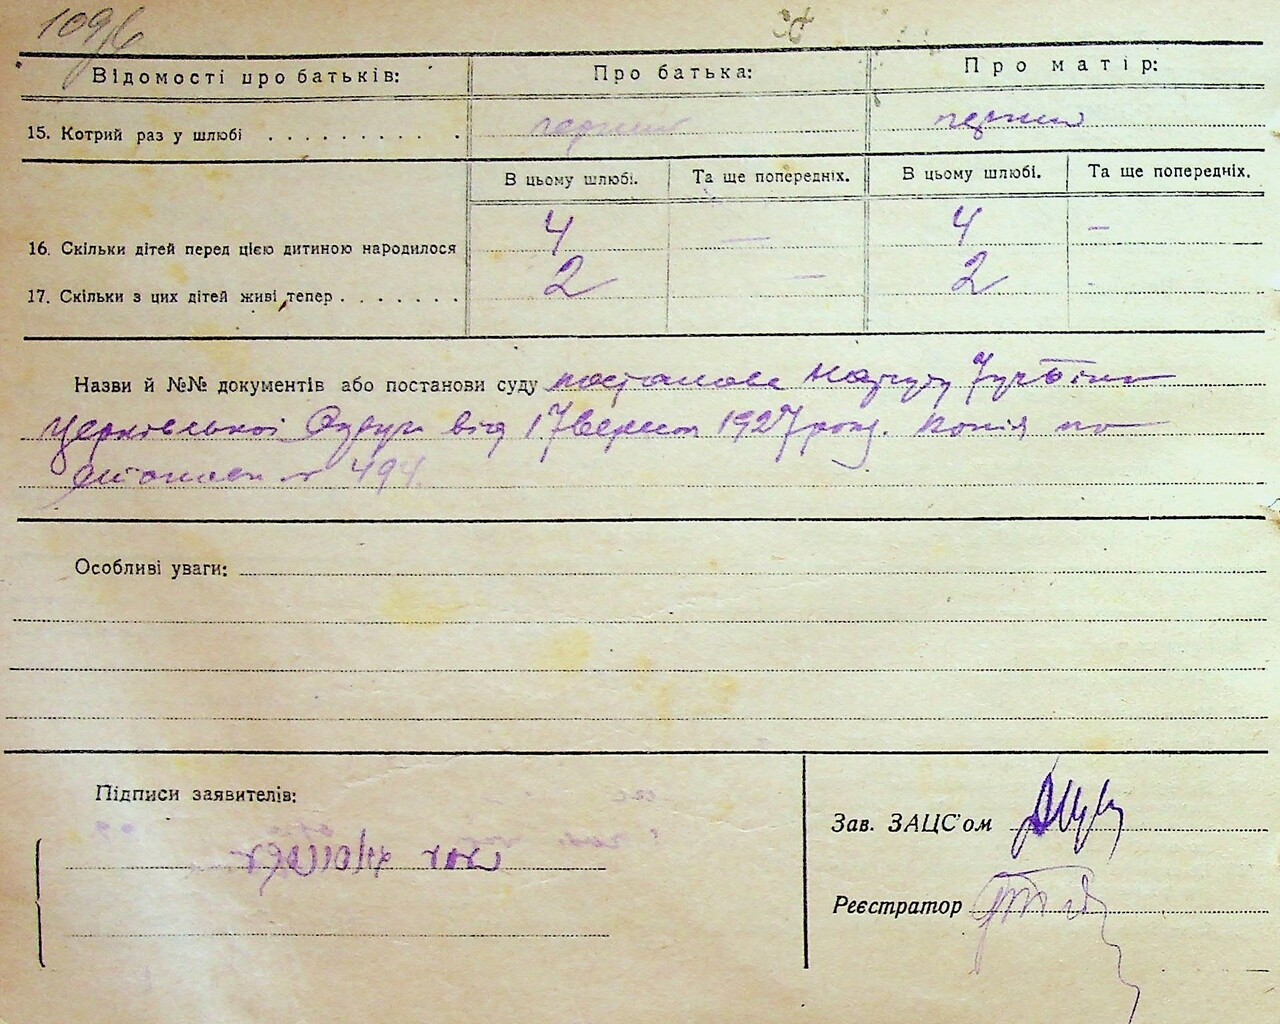 109
Відомості про батьків: Про батька: Про матір:
15. Котрий раз у шлюбі . . . . . . . . . . перший перший
В цьому шлюбі. Та ще попередніх. В цьому шлюбі. Та ще попередніх.
16. Скільки дітей перед цією дитиною народилося 4 — 4 –
17. Скільки з цих дітей живі тепер . . . . . . . 2 — 2
Назви й №№ документів або постанови суду постанова
Церківської від 17 вересня 1927 року. Копія по
станови 494.
Особливі уваги:
Підписи заявителів:
Зав. ЗАЦС'ом
Реєстратор